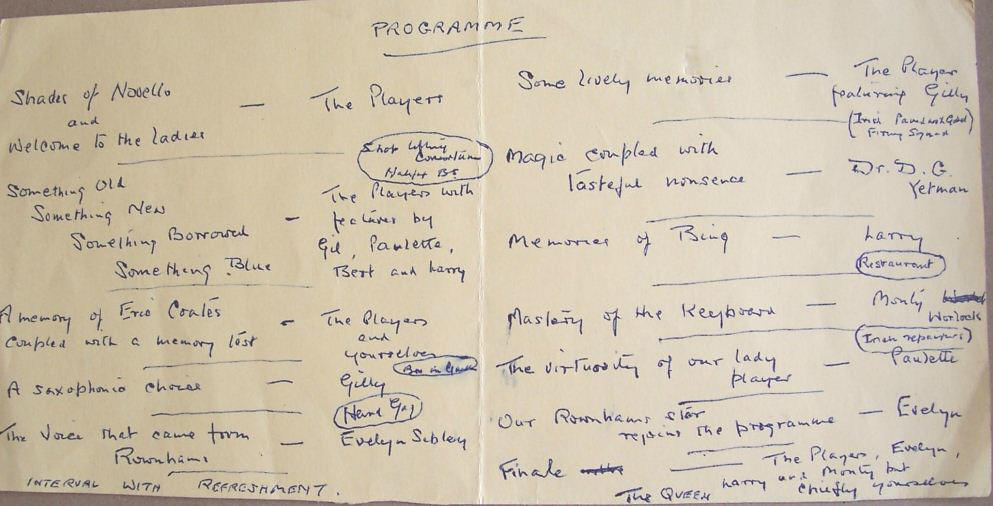 PROGRAMME
Shades of Novello
and
Welcome to the Ladies — The Players
Shop lifting
Halifax BS
Something Old
Something New
Something Borrowed
Something Blue
- The Players with
features by
Gil, Paulette,
Bert and Larry
A memory of Eric Coates
coupled with a memory lost
- The Players
and
yourselves
A saxophonic choice — Gilly
The Voice that came from
Rownhams — Evelyn Sibley
INTERVAL WITH REFRESHMENT.
Some lively memories — The Players
featuring Gilly
Firing Squad
Magic coupled with
tasteful nonsense — Dr. D. G.
Yetman
Memories of Bing — Larry
Restaurant
Mastery of the Keyboard — Monty
Warlock
The virtuosity of our lady
player — Paulette
Our Rownhams star
rejoins the programme — Evelyn
Finale — The Players, Evelyn,
Larry and Monty but
chiefly yourselves
The QUEEN